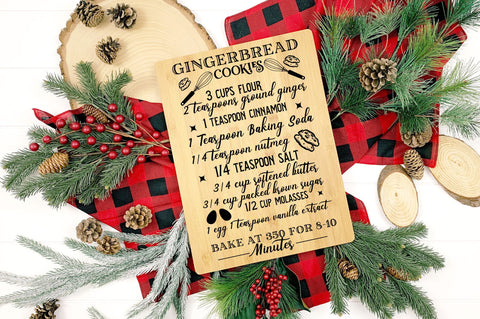 GINGERBREAD
COOKIES
3 CUPS FLOUR
2 Teaspoons ground ginger
1 TEASPOON CINNAMON
1 Teaspoon Baking Soda
1/4 teaspoon nutmeg
1/4 TEASPOON SALT
3/4 cup softened butter
3/4 cup packed brown sugar
1/2 CUP MOLASSES
1 egg 1 teaspoon vanilla extract
BAKE AT 350 FOR 8-10
Minutes